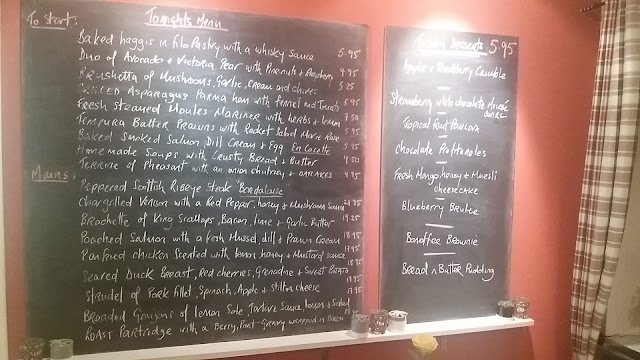 Tonights Menu
To Start:
Baked haggis in filo Pastry with a whisky Sauce 5.95
Duo of Avocado + Victoria Pear with Pinenuts + Raspberry 4.95
Brushetta of Mushrooms, Garlic, Cream and chives 5.25
Asparagus Parma ham with fennel and 5.95
Fresh Steamed Moules Mariner with herbs + lemon 7.50
Tempura Batter Prawns with Rocket Salad Marie Rose 5.95
Baked Smoked Salmon, Dill Cream + Egg En Cocotte 5.95
Homemade Soups with Crusty Bread + Butter 4.50
Terrine of Pheasant with an onion chutney + oatcakes 4.95
Mains:
Peppered Scottish Ribeye Steak 'Bordalaise'
Chargrilled Venison with a Red Pepper, honey + Mushroom Sauce
Brochette of King Scallops, Bacon, lime + Garlic Butter 19.25
Poached Salmon with a fresh Mussel, dill + Prawn Cream 18.95
Panfried chicken Scented with lemon honey + Mustard Sauce 17.95
Seared Duck Breast, Red cherries, Grenadine + Sweet Potato
Strudel of Pork fillet, Spinach, Apple + Stilton cheese 17.95
Breaded Goujons of lemon Sole Tartare Sauce, lemon + Salad
Roast Partridge with a Berry, Port Gravy wrapped in Bacon
Desserts 5.95
Apple + Blackberry Crumble
Strawberry white chocolate Mousse
Tropical Fruit Pavlova
Chocolate Profiteroles
Fresh Mango honey + Muesli
cheesecake
Blueberry Brulee
Banoffee Brownie
Bread n Butter Pudding